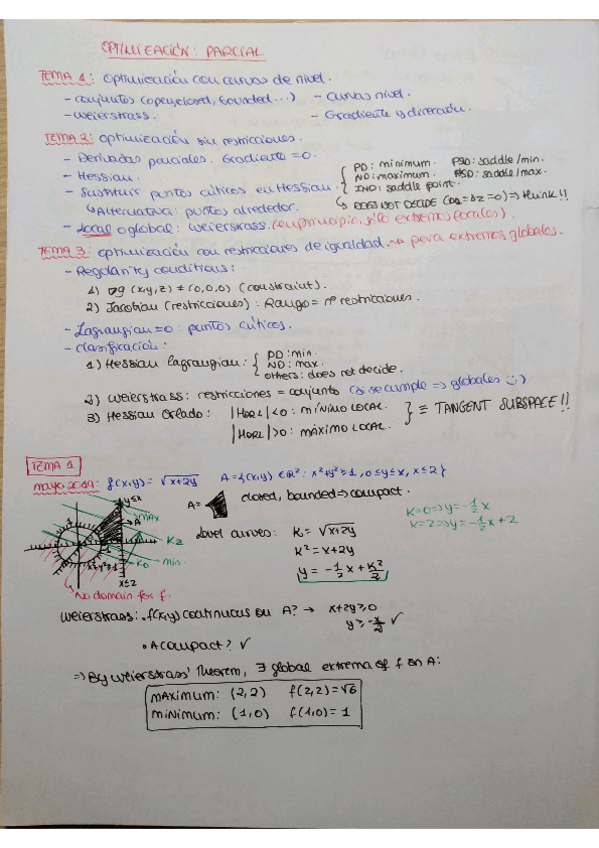 OPTIMIZACIÓN: PARCIAL
TEMA 1: optimización con curvas de nivel.
- conjuntos (open, closed, bounded...) - Curvas nivel.
- Weierstrass. - Gradiente y dirección.
TEMA 2: optimización sin restricciones.
- Derivadas parciales. Gradiente = 0.
- Hessian.
- Sustituir puntos críticos en Hessian. { PD: minimum. PSD: saddle/min.
ND: maximum. NSD: saddle/max.
IND: saddle point.
↳ DOES NOT DECIDE (Δ1=Δ2=0) ⇒ think!!
↳ Alternativa: puntos alrededor.
- Local o global: Weierstrass. (en principio, sólo extremos locales).
TEMA 3: optimización con restricciones de igualdad. no para extremos globales.
- Regularity conditions:
1) ∇g (x,y,z) ≠ (0,0,0) (constraint).
2) Jacobian (restricciones): Rango = nº restricciones.
- Lagrangian = 0: puntos críticos.
- Clasificación:
1) Hessian lagrangian: { PD: min.
ND: max.
others: does not decide.
2) Weierstrass: restricciones = conjunto (si se cumple ⇒ globales :))
3) Hessian Orlado: |HORL| < 0: MÍNIMO LOCAL. } ≡ TANGENT SUBSPACE!!
|HORL| > 0: MÁXIMO LOCAL.
TEMA 1
mayo 2019: f(x,y) = √x+2y A = {(x,y) ∈ R²: x²+y² ≥ 1, 0 ≤ y ≤ x, x ≤ 2}
y≤x
A = closed, bounded ⇒ compact.
A
MAX
K=0 ⇒ y = -1/2 x
K=2 ⇒ y = -1/2 x + 2
Level curves: K = √x+2y
K2
K² = x+2y
K0
min.
x²+y²≥1
y = -1/2 x + K²/2
x≤2
↳ No domain for f.
Weierstrass: · f(x,y) continuous on A? → x+2y ≥ 0
y ≥ -x/2 ✓
· A compact? ✓
⇒ By Weierstrass' Theorem, ∃ global extrema of f on A:
MAXIMUM: (2,2) f(2,2) = √6
MINIMUM: (1,0) f(1,0) = 1